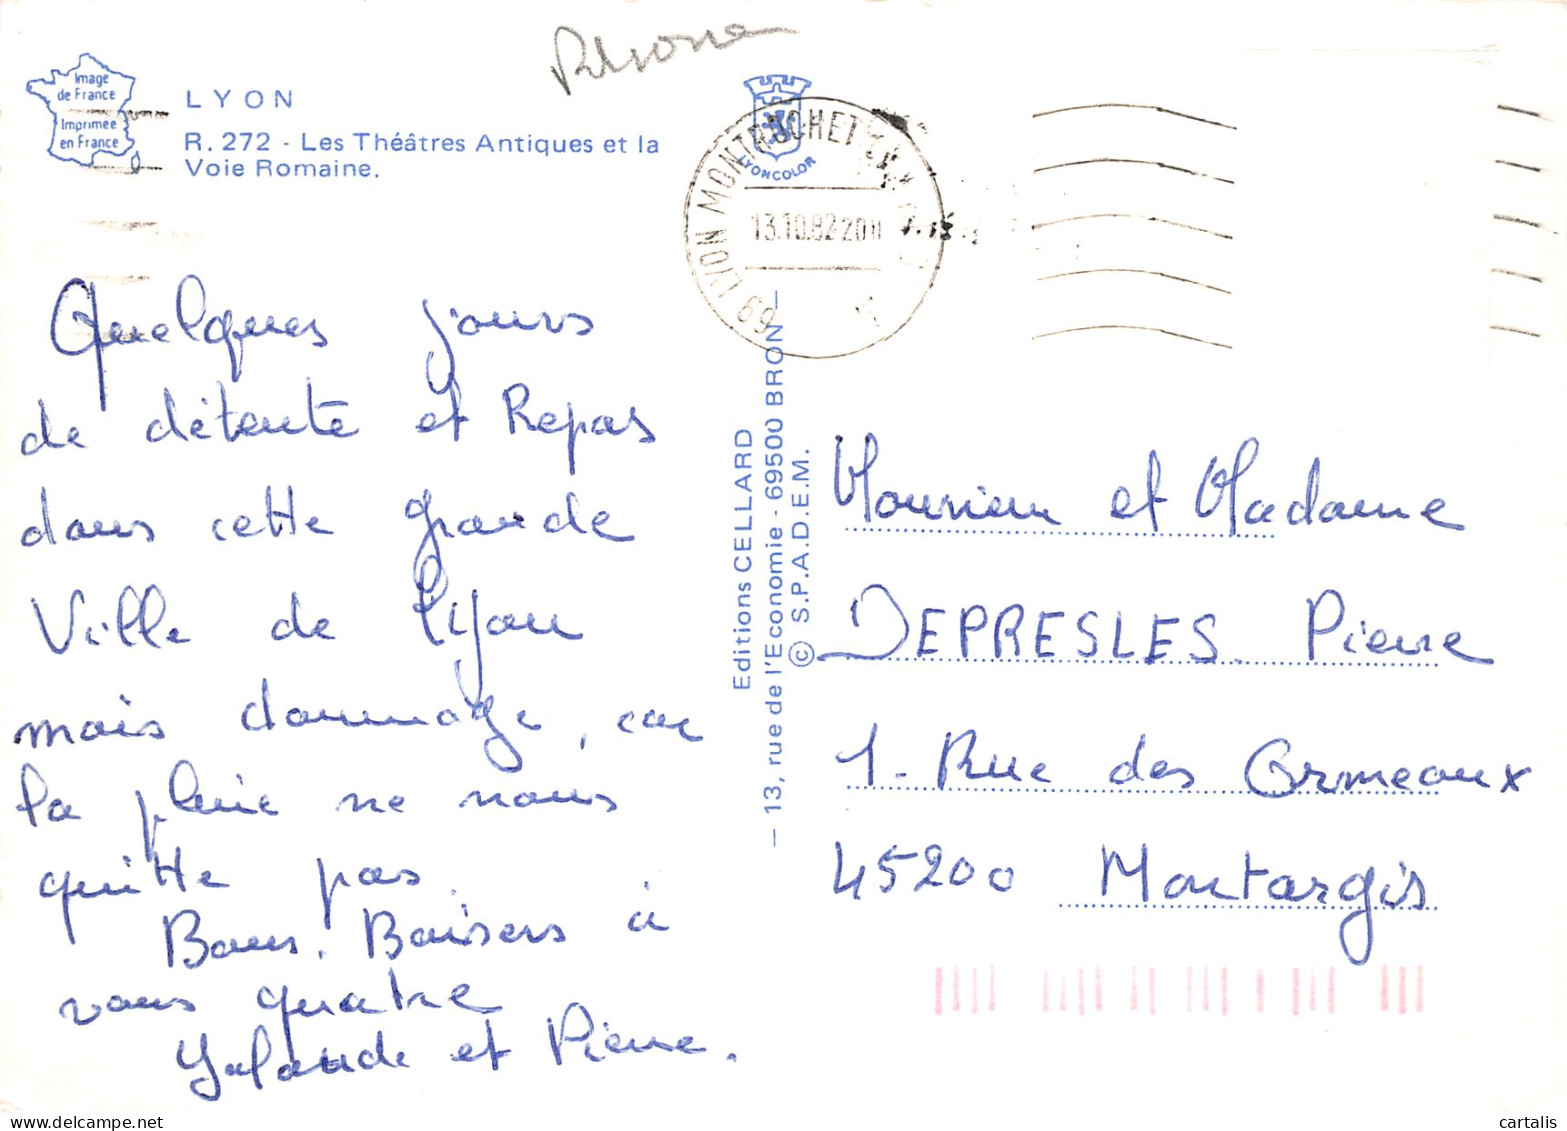 Rhone
Image
de France
Imprimée
en France
LYON
R. 272 - Les Théâtres Antiques et la
Voie Romaine.
LYONCOLOR
69 LYON MONTROCHET
13.10.82 20H
Quelques jours
de détente et Repas
dans cette grande
Ville de Lyon
mais dommage, car
la pluie ne nous
quitte pas.
Bons. Baisers à
vous quatre
Yolande et Pierre.
Editions CELLARD
— 13, rue de l'Economie - 69500 BRON —
© S.P.A.D.E.M.
Monsieur et Madame
DEPRESLES Pierre
1. Rue des Ormeaux
45200 Montargis
cartalis